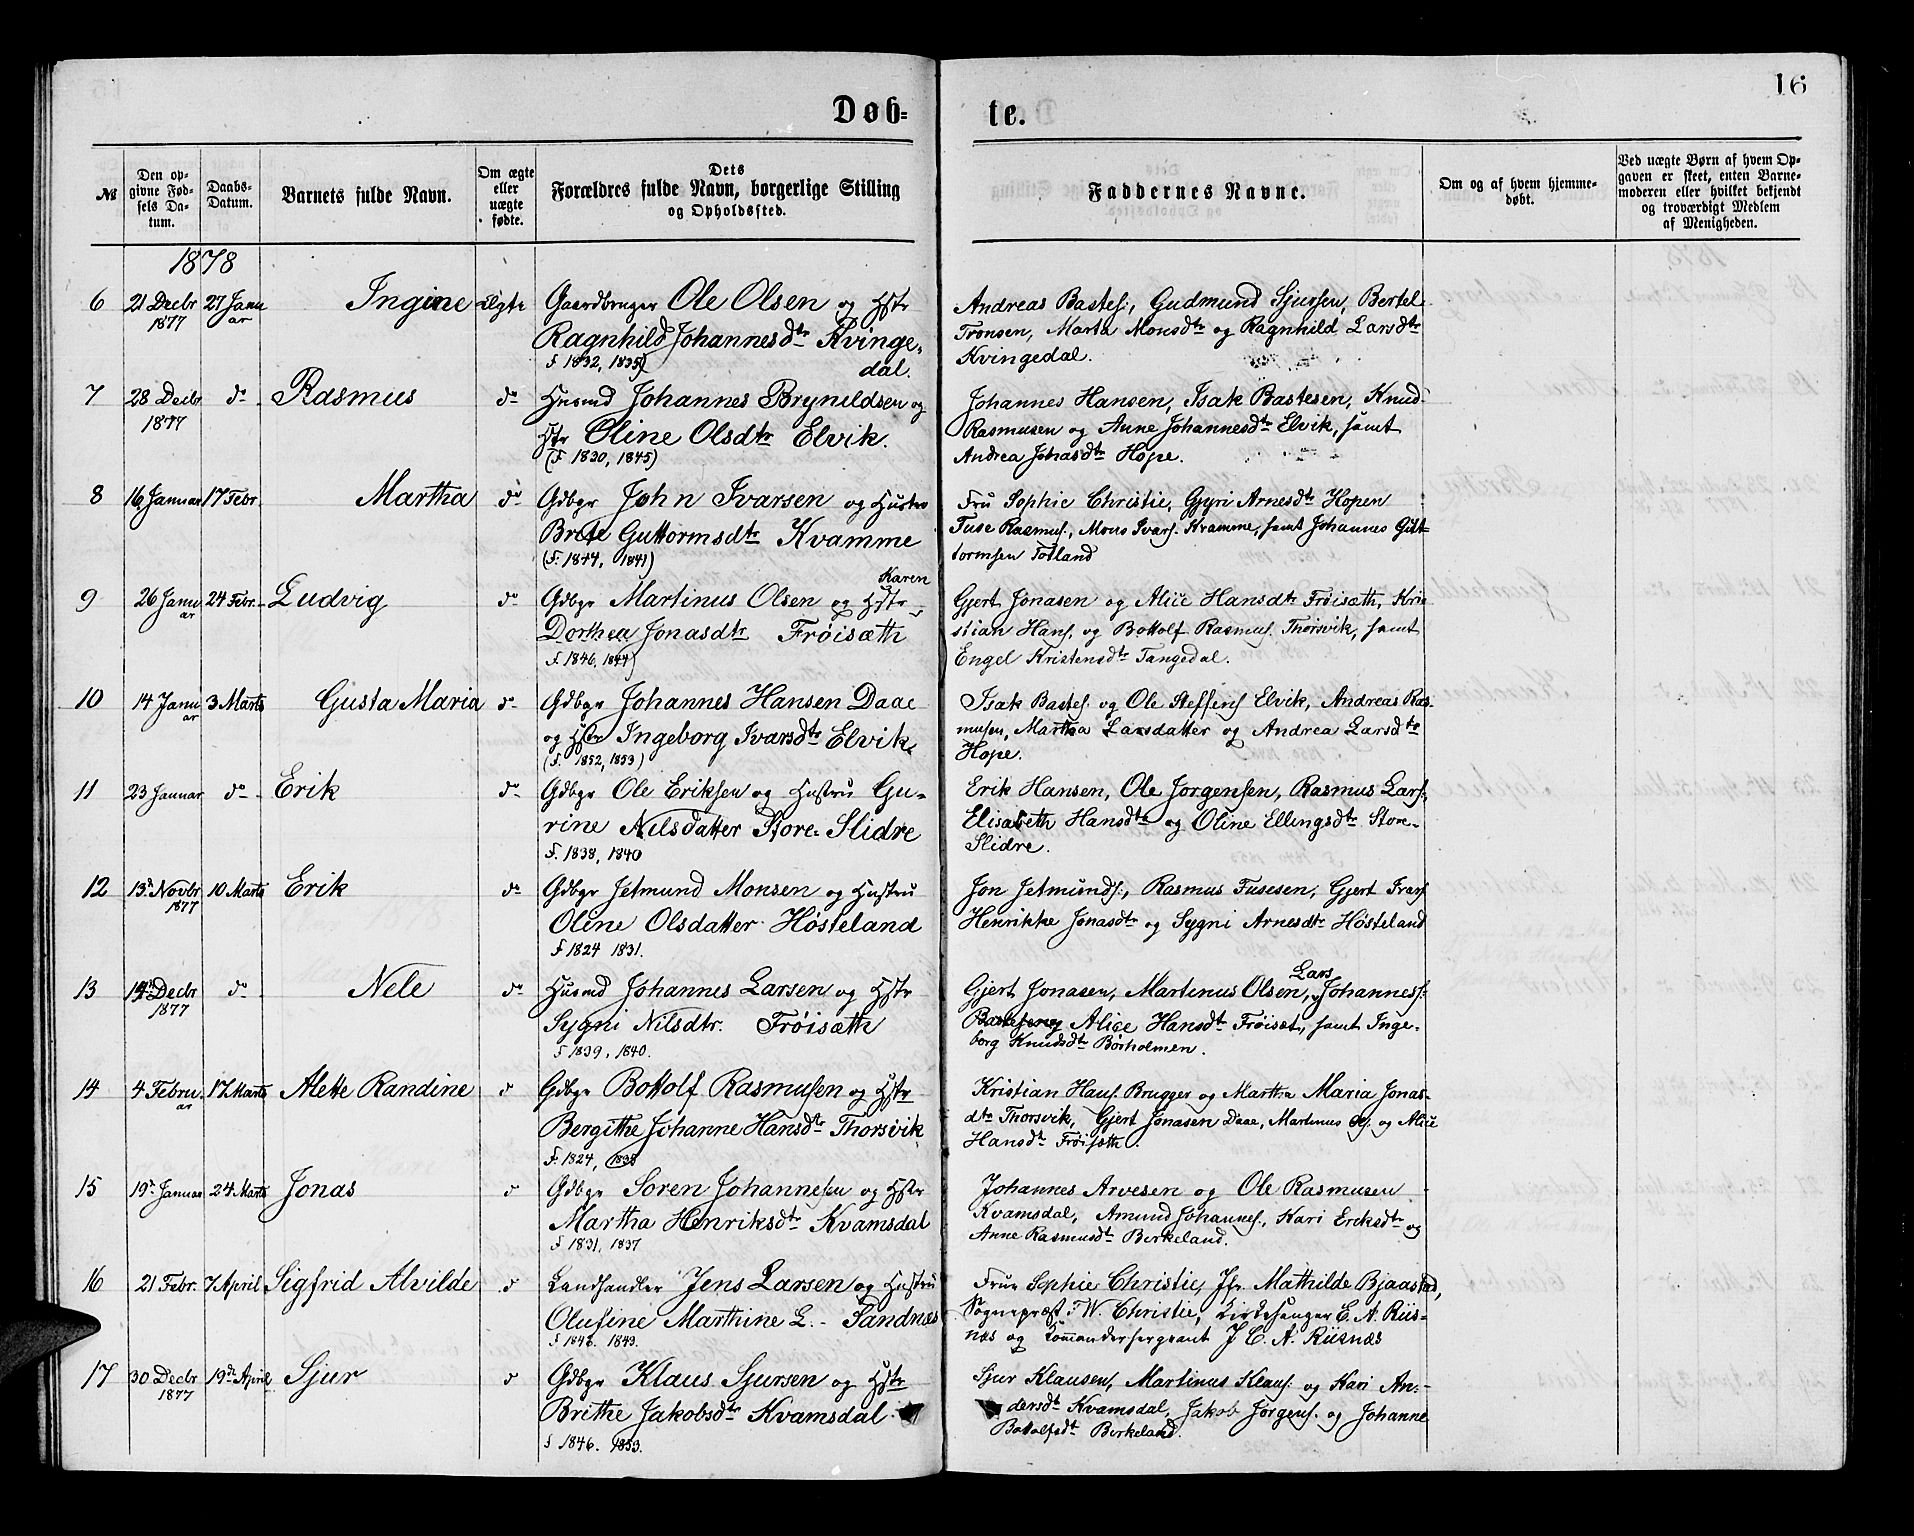 16
Døb= te.
№
Den op-
givne Fød-
sels Da-
tum.
Daabs-
Datum.
Barnets fulde Navn.
Om ægte
eller
uægte
fødte.
Dets
Forældres fulde Navn, borgerlige Stilling
og Opholdssted.
Faddernes Navne.
Om og af hvem hjemme-
døbt.
Ved uægte Børn af hvem Op-
gaven er skeet, enten Barne-
moderen eller hvilket bekjendt
og troværdigt Medlem
af Menigheden.
1878
6 21 Decbr 1877 27 Januar Ingine ægte Gaardbruger Ole Olsen og Hstr
Ragnhild Johannesdtr Kvinge-
dal.
f 1832, 1835)
Andreas Bastes:, Gudmund Sjursen, Bertel
Tronsen, Marta Monsdtr og Ragnhild Larsdtr
Kvingedal.
7 28 Decbr 1877 do Rasmus do Husmd Johannes Brynildsen og
Hstr Oline Olsdtr Elvik.
(f. 1830, 1845)
Johannes Hansen, Isak Bastesen, Knud
Rasmusen og Anne Johannesdtr Elvik, samt
Andrea Johasdtr Hope.
8 16 Januar 17 Febr. Martha do Gdbgr John Ivarsen og Hustro
Brite Guttormsdtr Kvamme
(f. 1844, 1841)
Fru Sophie Christie, Gjyri Arnesdtr Hopen
Tuse Rasmus., Mons Ivars. Kvamme, samt Johannes Gut-
tormsen Totland
9 26 Januar 24 Febr. Ludvig do Gdbgr Martinus Olsen og Hstr Karen
Dorthea Jonasdtr Frøisæth
f. 1846, 1844)
Gjert Jonasen og Alice Hansdtr Frøisæth, Kri-
stian Hans. og Bottolf Rasmus. Thorsvik, samt
Engel Kristensdtr Tangedal.
10 14 Januar 3 Marts Gusta Maria do Gdbgr Johannes Hansen Daae
og Hstr Ingeborg Ivarsdtr Elvik,
(f. 1852, 1853)
Isak Bastes. og Ole Steffens Elvik, Andreas Ras-
musen, Martha Larsdatter og Andrea Larsdtr
Hope.
11 23 Januar do Erik do Gdbgr Ole Eriksen og Hustru Gu-
rine Nilsdatter Store-Slidre
f. 1838, 1840
Erik Hansen, Ole Jørgensen, Rasmus Lars.,
Elisabeth Hansdtr og Oline Ellingsdtr Store-
Slidre.
12 13de Novbr 1877 10 Marts Erik do Gdbgr Jetmund Monsen og Hustru
Oline Olsdatter Høsteland
f 1824 1831.
Jon Jetmunds., Rasmus Tusesen, Gjert Ivars
Henrikke Jonasdtr og Sygni Arnesdtr Høsteland
13 Decbr 1877 do Nele do Husmd Johannes Larsen og Hstr
Sygni Nilsdtr. Frøisæth
f 1839, 1840.
Gjert Jonasen, Martinus Olsen, Lars Johanness:
Alice Hansdtr Frøiset, samt Inge-
borg Knudsdtr Børholmen.
14 4 Februar 17 Marts Alette Randine d Gdbgr Bottolf Rasmusen og Hstr
Bergithe Johanne Hansdtr Thorsvik
f. 1824, 1838
Kristian Hans. Brugger og Martha Maria Jonas-
dtr Thorsvik, Gjert Jonasen Daae, Martinus Ols. og Alice
Hansdtr Frøisæth.
15 19de Januar 24 Marts Jonas d Gdbgr Søren Johannesen og Hstr
Martha Henriksdtr Kvamsdal
f 1831, 1837
Johannes Arvesen og Ole Rasmusen
Kvamsdal, Amund Johannes., Kari Eriksdtr og
Anne Rasmusdtr Birkeland.
16 21 Febr. 7 April Sigfrid Alvilde d Landhandler Jens Larsen og Hustru
Olufine Marthine L. Sandnæs
f 1843. 1849.
Frue Sophie Christie, Jfr. Mathilde Bjaastad,
Sognepræst T W. Christie, Kirkesanger E. A. Riis-
næs og Kommandersergeant J C. A. Riisnæs
17 30 Decbr 1877 19de April Sjur d Gdbgr Klaus Sjursen og Hstr
Brithe Jakobsdtr Kvamsdal
f 1846. 1853.
Sjur Klausen, Martinus Klaus. og Kari An-
dersdtr Kvamsdal, Jakob Jørgens. og Johanne
Bottolfsdtr Birkeland.